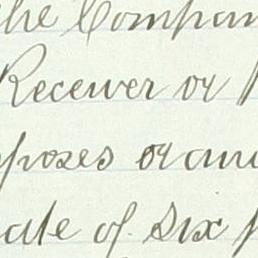 the Compan
Receiver or
poses or any
ate of six p